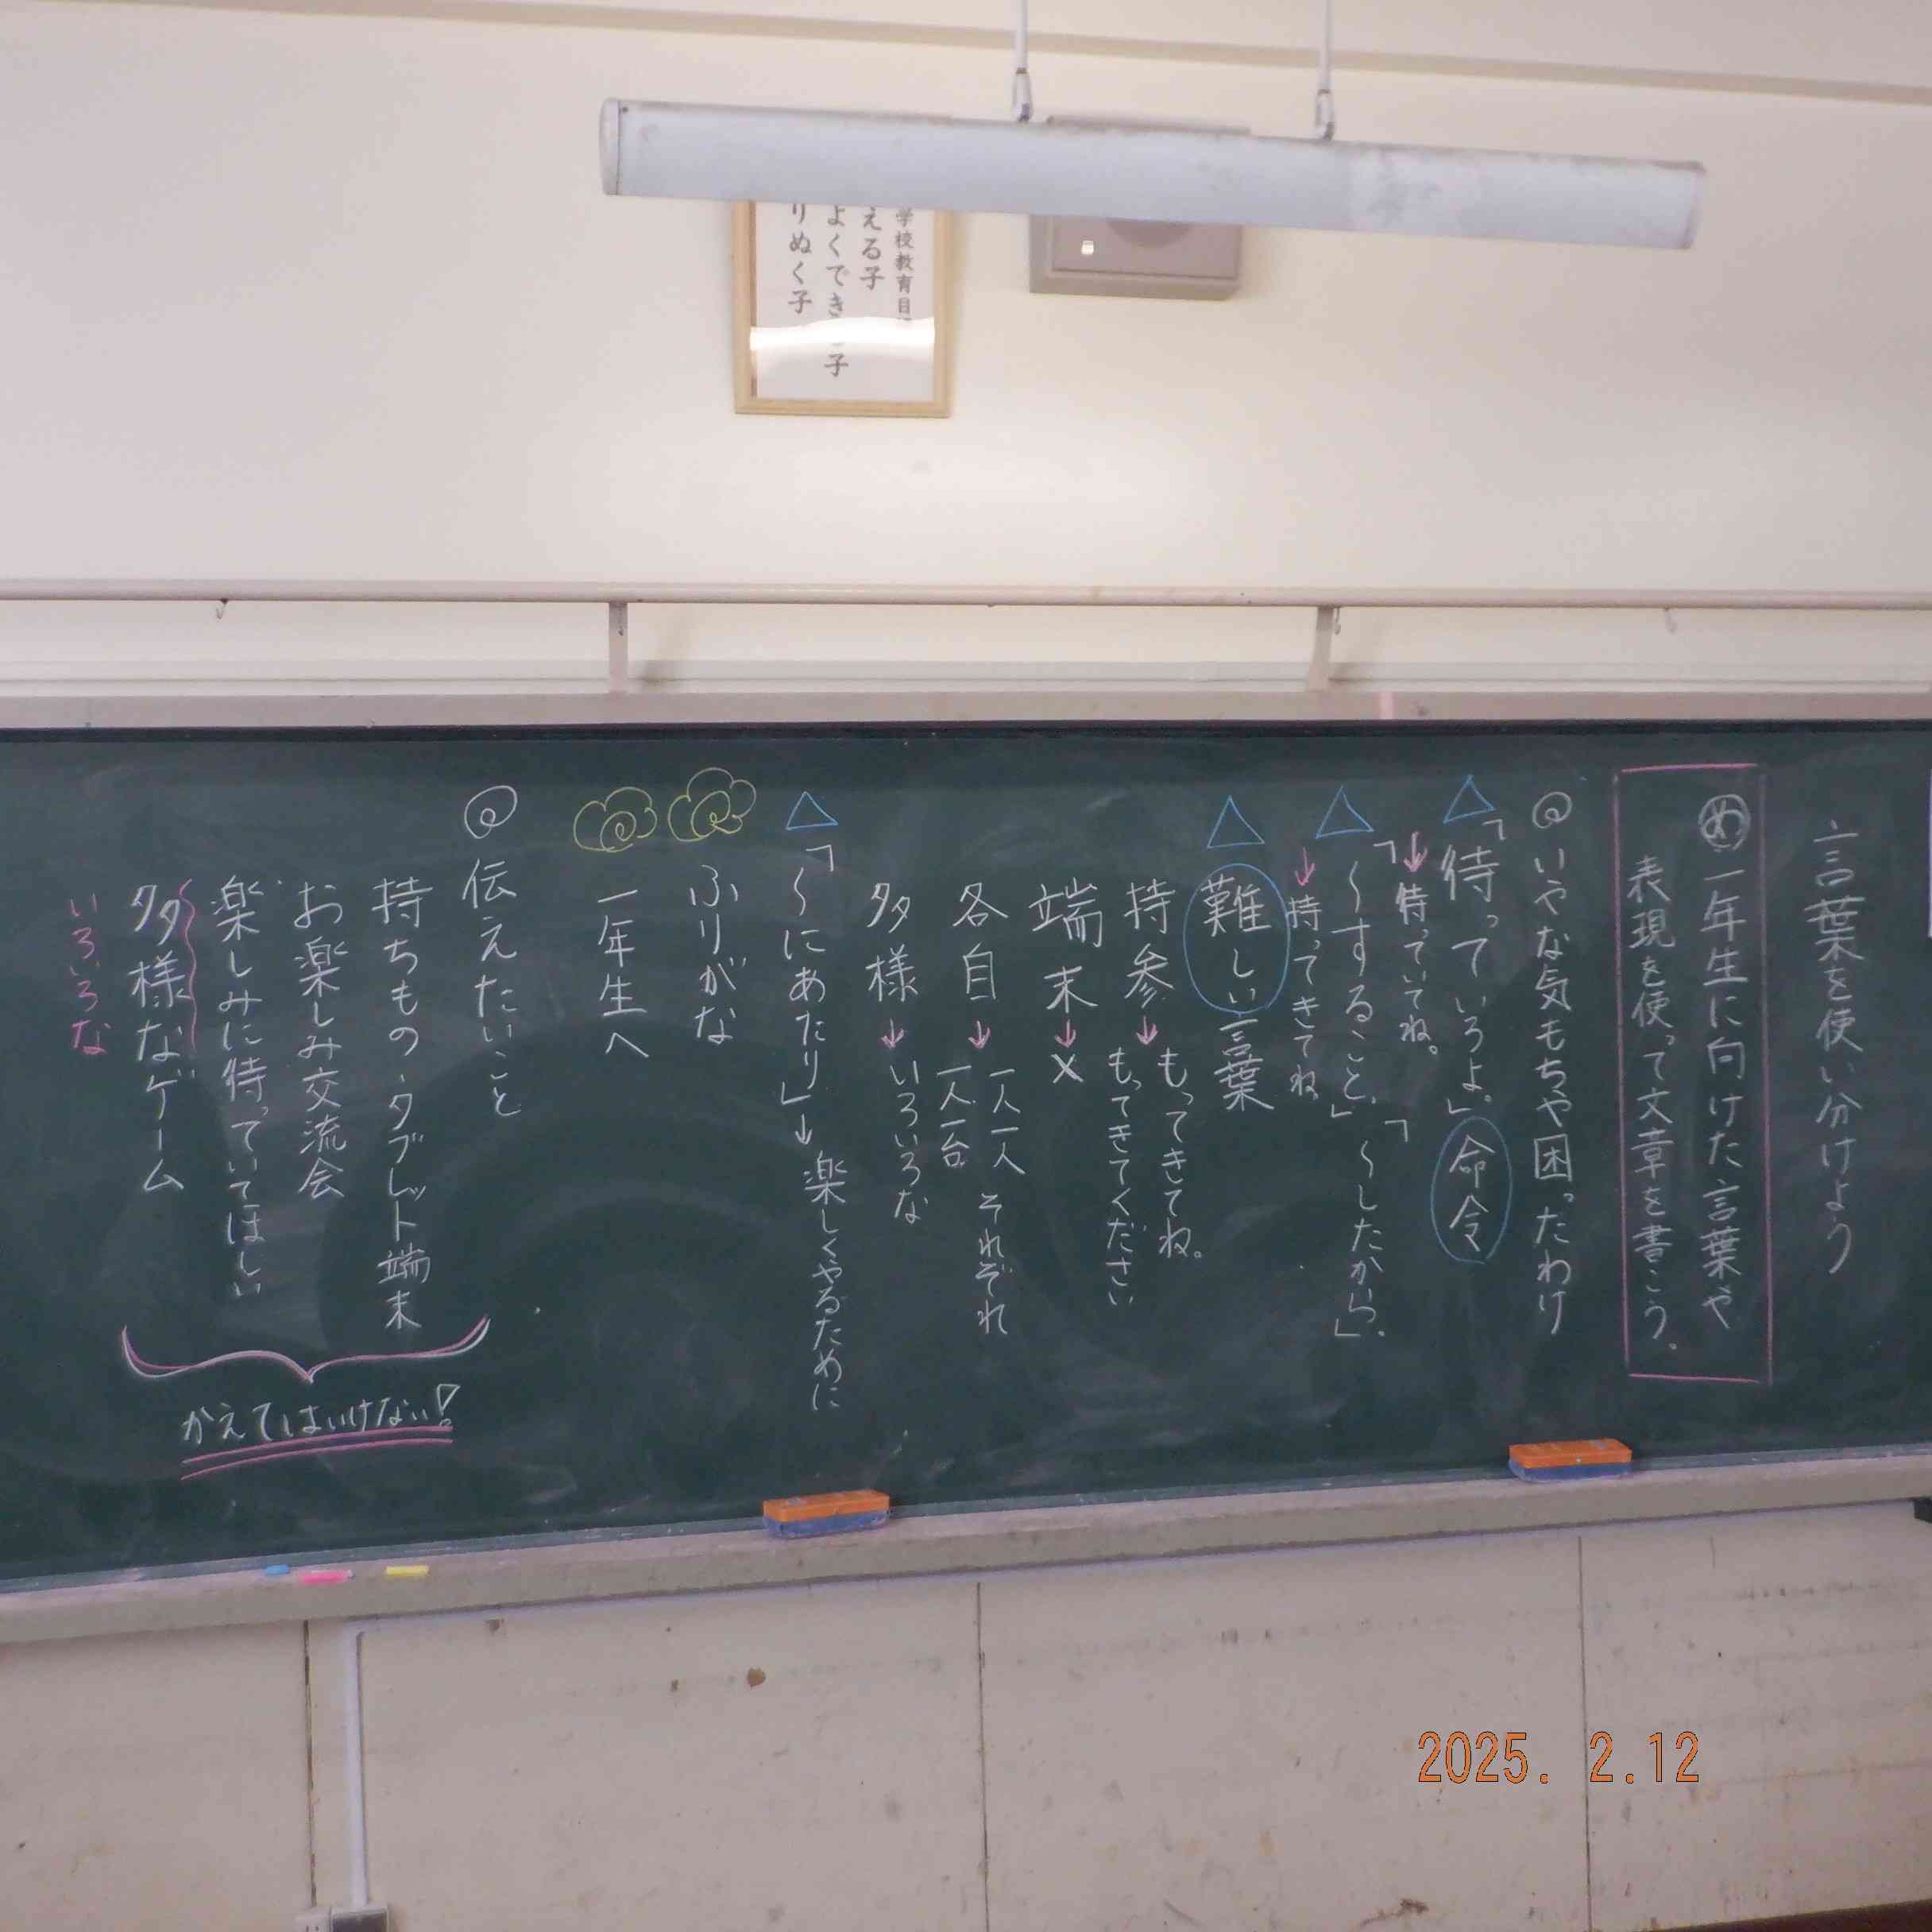 学校教育目
える子
よくでき 子
りぬく子
言葉を使い分けよう
め 一年生に向けた言葉や
表現を使って文章を書こう。
◎いやな気もちや困ったわけ
△「待っていろよ。」命令
↓待っていてね。
△「〜すること。」「〜したから。」
↓持ってきてね。
△難しい言葉
持参→もってきてね。
もってきてください
端末→×
各自→一人一人 それぞれ
一人一台
多様→いろいろな
△「〜にあたり」→楽しくやるために
ふりがな
一年生へ
◎伝えたいこと
持ちもの・タブレット端末
お楽しみ交流会
楽しみに待っていてほしい
多様なゲーム
いろいろな
かえてはいけない!
2025. 2.12